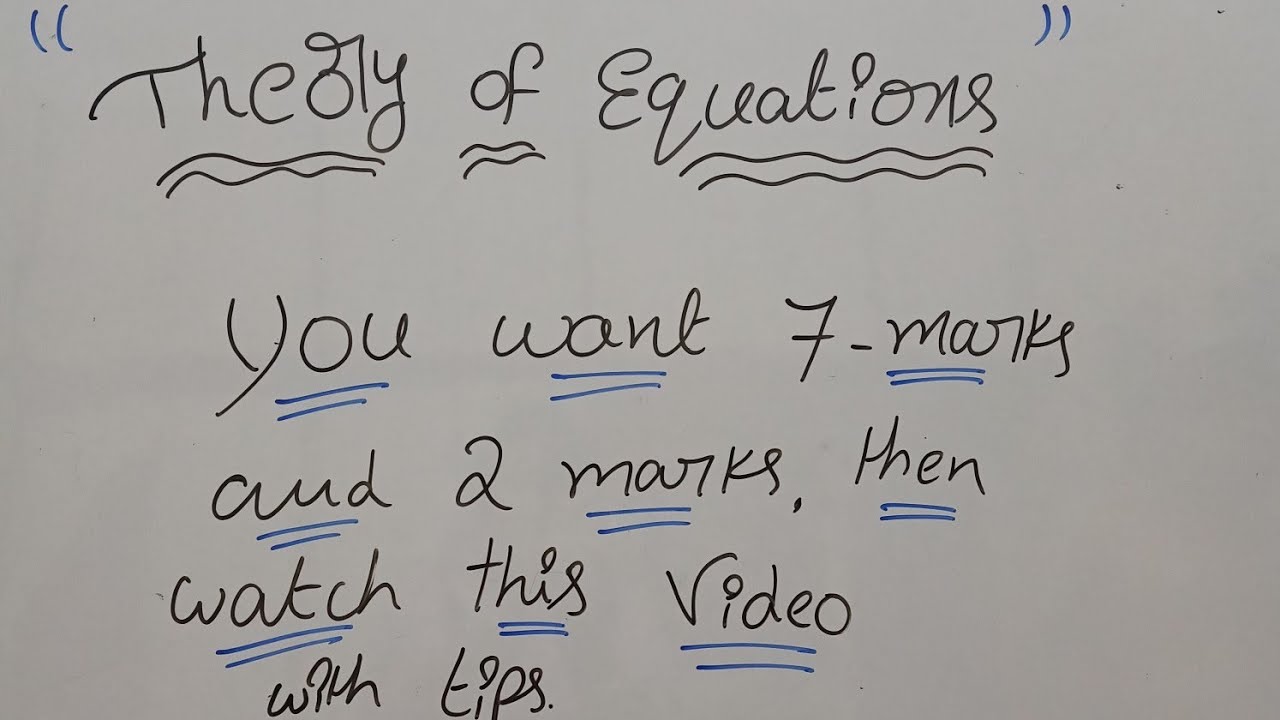 "Theory of Equations"
You want 7-marks
and 2 marks, then
watch this Video
with tips.